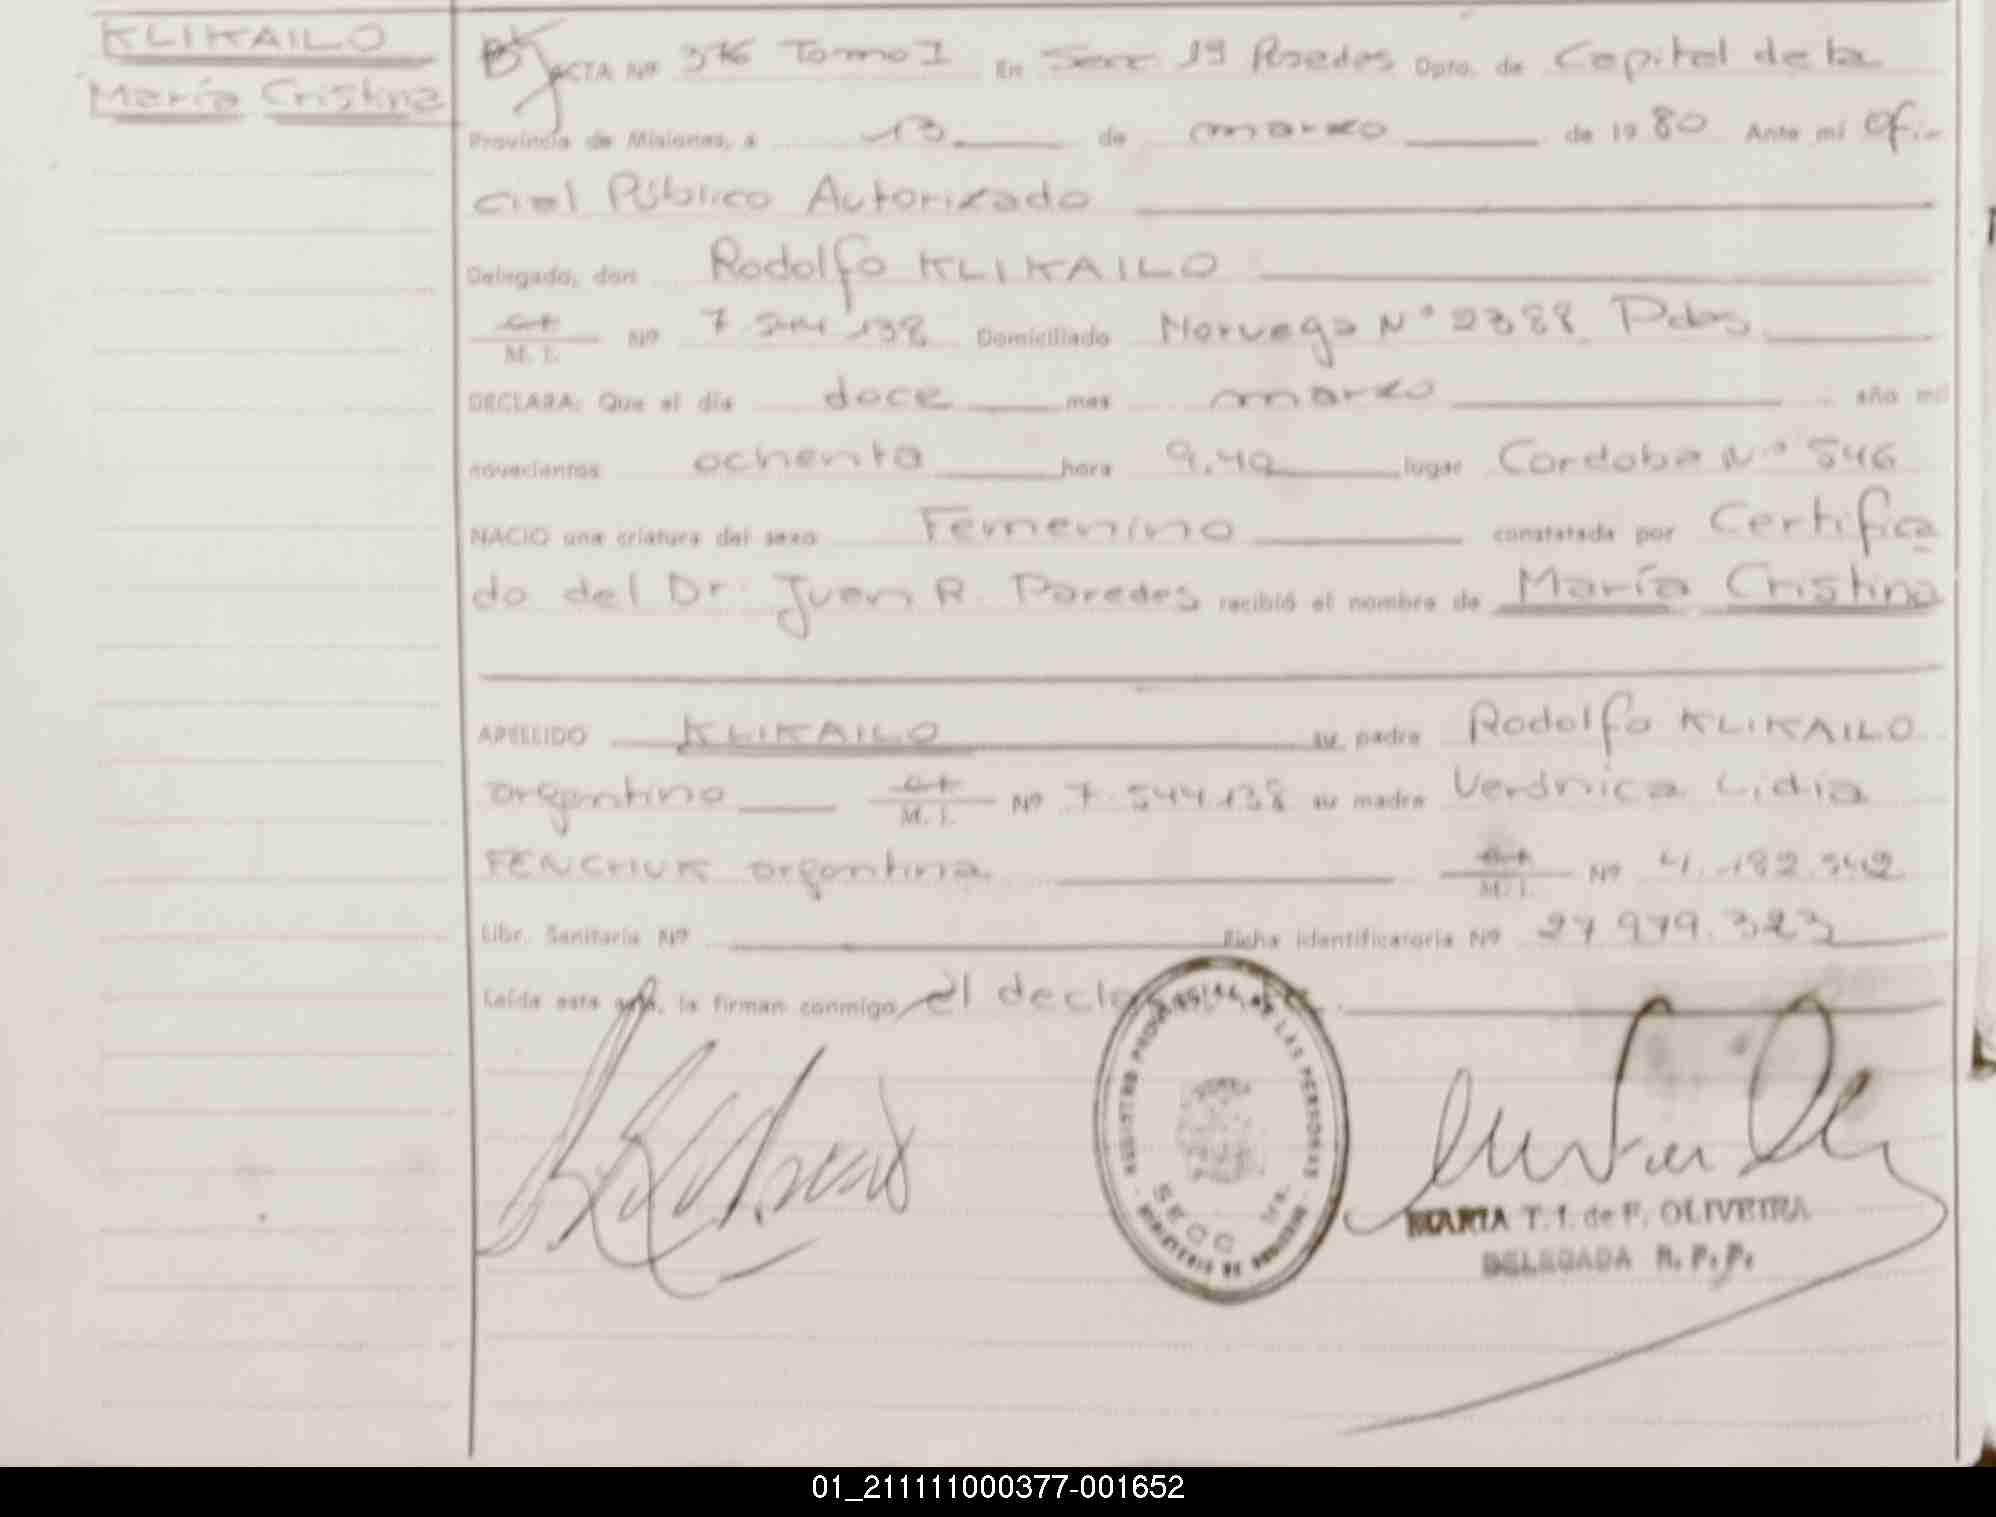 KLIKAILO
María Cristina
ACTA Nº 376 Tomo I En Secc 19 Posadas Dpto. de Capital de la
Provincia de Misiones, a 13 de marzo de 1980 Ante mi Ofi-
cial Público Autorizado
Delegado, don Rodolfo KLIKAILO
M. I. Nº 7.544.138 Domiciliado Noruega Nº 2388 Pdas
DECLARA: Que el día doce mes marzo año mil
novecientos ochenta hora 9,40 lugar Cordoba Nº 546
NACIO una criatura del sexo Femenino constatada por Certifica
do del Dr. Juan R. Paredes recibió el nombre de María Cristina
APELLIDO KLIKAILO su padre Rodolfo KLIKAILO
argentino M. I. Nº 7.544.138 su madre Verónica Lidia
FENCHUK argentina M. I. Nº 4.182.542
Libr. Sanitaria Nº Ficha identificatoria Nº 27.979.323
Leída esta acta, la firman conmigo, el
REGISTRO PROVINCIAL DE LAS PERSONAS
SECC
MINISTERIO DE GOBIERNO
MARIA T. f. de F. OLIVEIRA
DELEGADA R. P. P.
01_211111000377-001652